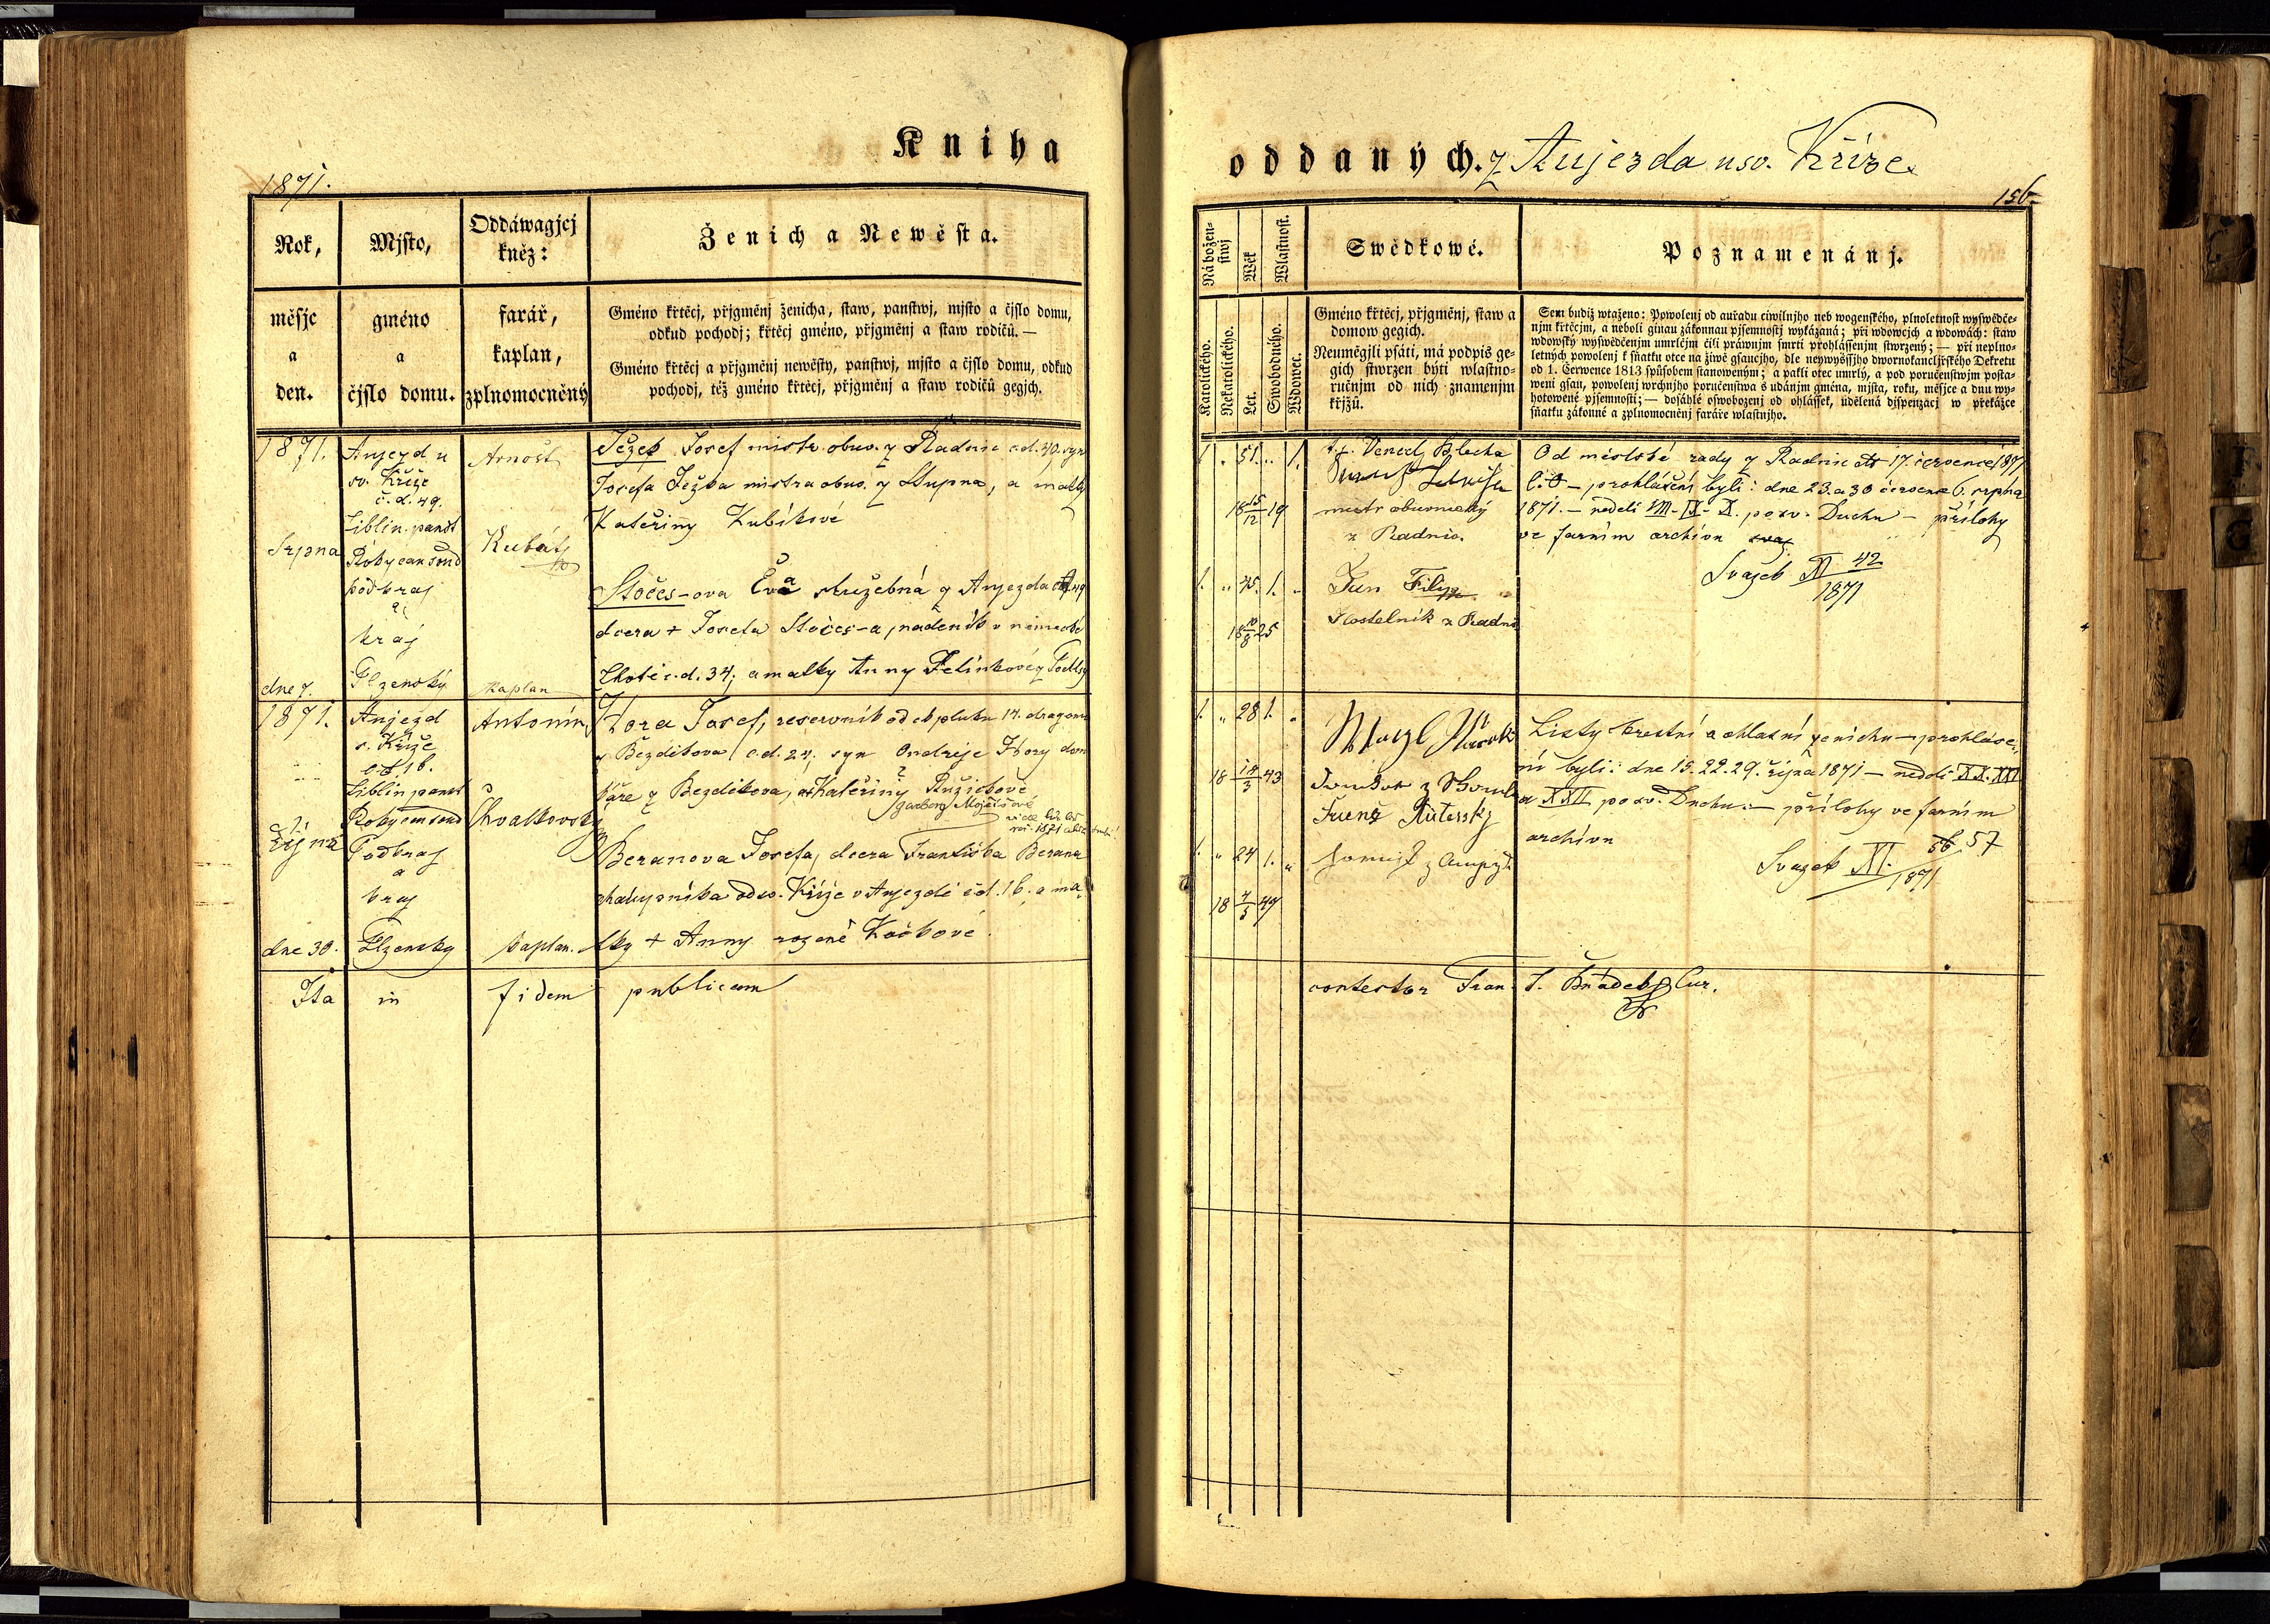 Kniha
1871.
Rok,
měsjc
a
den.
Mjsto,
gméno
a
čjslo domu.
Oddáwagjcj
kněz:
farář,
kaplan,
zplnomocněný
Ženich a Newěsta.
Gméno křtěcj, přjgměnj ženicha, staw, panstwj, mjsto a čjslo domu,
odkud pochodj; křtěcj gméno, přjgměnj a staw rodičů. —
Gméno křtěcj a přjgměnj newěsty, panstwj, mjsto a čjslo domu, odkud
pochodj, též gméno křtěcj, přjgměnj a staw rodičů gegjch.
1871.
Srpna
dne 7.
Aujezd u
sv. Kříže
č. d. 49.
Liblin. panst
Rokycan soud
podkraj
a
kraj
Plzenský
Arnošt
Kubát
kaplan
Ježek Josef mistr obuv. z Radnic č.d. 40. syn
Josefa Ježka mistra obuv. z Stupna, a matky
Kateřiny Kubíkové
Stočes-ova Eva služebná z Aujezda č. 49
dcera + Josefa Stočes-a, nádeník v německé
Lhotě č.d. 34; a matky Anny Felinkové z
1871.
Října
dne 30.
Aujezd
s. Kříže
č. d. 16.
Liblin panst
Rokycan soud
Podkraj
a
kraj
Plzensky
Antonín
Chvalkovský
kaplan.
Hora Josef, reservník od pluku 14. dragonů
z Bezděkova č.d. 24, syn Ondreje Hory dom
káře z Bezděkova, a Kateřiny Růžičkové
Beranova Josefa, dcera Františka Berana
chalupníka od sv. Kříže v Aujezdě č.d. 16. a ma
tky + Anny rozené Kočkové.
Ita in fidem publicam
oddaných. z Aujezda u sv. Kříže.
156.
Náboženstwj
Katolického.
Nekatolického.
Wěk
Let.
Wlastnost.
Swobodného.
Wdowec.
Swědkowé.
Gméno křtěcj, přjgměnj, staw a
domow gegich.
Neuměgjli psáti, má podpis ge-
gich stwrzen býti wlastno-
ručnjm od nich znamenjm
křjžů.
Poznamenánj.
Sem budiž wtaženo: Powolenj od auřadu ciwilnjho neb wogenského, plnoletnost wyswědče-
njm křtěcjm, a neboli ginau zákonnau pjsemnostj wykázaná; při wdowcjch a wdowách: staw
wdowský wyswědčenjm umrlčjm čili práwnjm smrti prohlássenjm stwrzený; — při neplno-
letných powolenj k sňatku otce na žiwě gsaucjho, dle neywyššjho dwornokancljřského Dekretu
od 1. Čerwence 1813 spůsobem stanoweným; a pakli otec umrlý, a pod poručenstwjm posta-
weni gsau, powolenj wrchnjho poručenstwa s udánjm gména, mjsta, roku, měsjce a dnu wy-
hotowené pjsemnosti; — dosáhlé oswobozenj od ohlášek, udělená djspenzacj w překážce
sňatku zákonné a zplnomocněnj faráře wlastnjho.
1. „ 51. „ 1.
18 15/12 19
1. „ 45. 1. „
18 10/8 25
Blecha
mistr obuvnický
z Radnic.
Jan Filip
Kostelník z Radnic
Od městské rady z Radnic dto 17. července 1871
prohlášení byli: dne 23. a 30 července 6. srpna
1871. — neděli VIII - IX - X. po sv. Duchu — přílohy
ve farním archívu
Svazek XI 42
1871
1. „ 28 1. „
18 14/3 43
1. „ 24 1. „
18 4/3 47
Listy krestní a ohlasní ženicha — prohláše-
ní byli: dne 15. 22. 29. října 1871 — neděli XX. XXI
a XXII po sv. Duchu — přílohy ve farním
archívu
Svazek XI. 57
1871
contestor Fran. Cur.